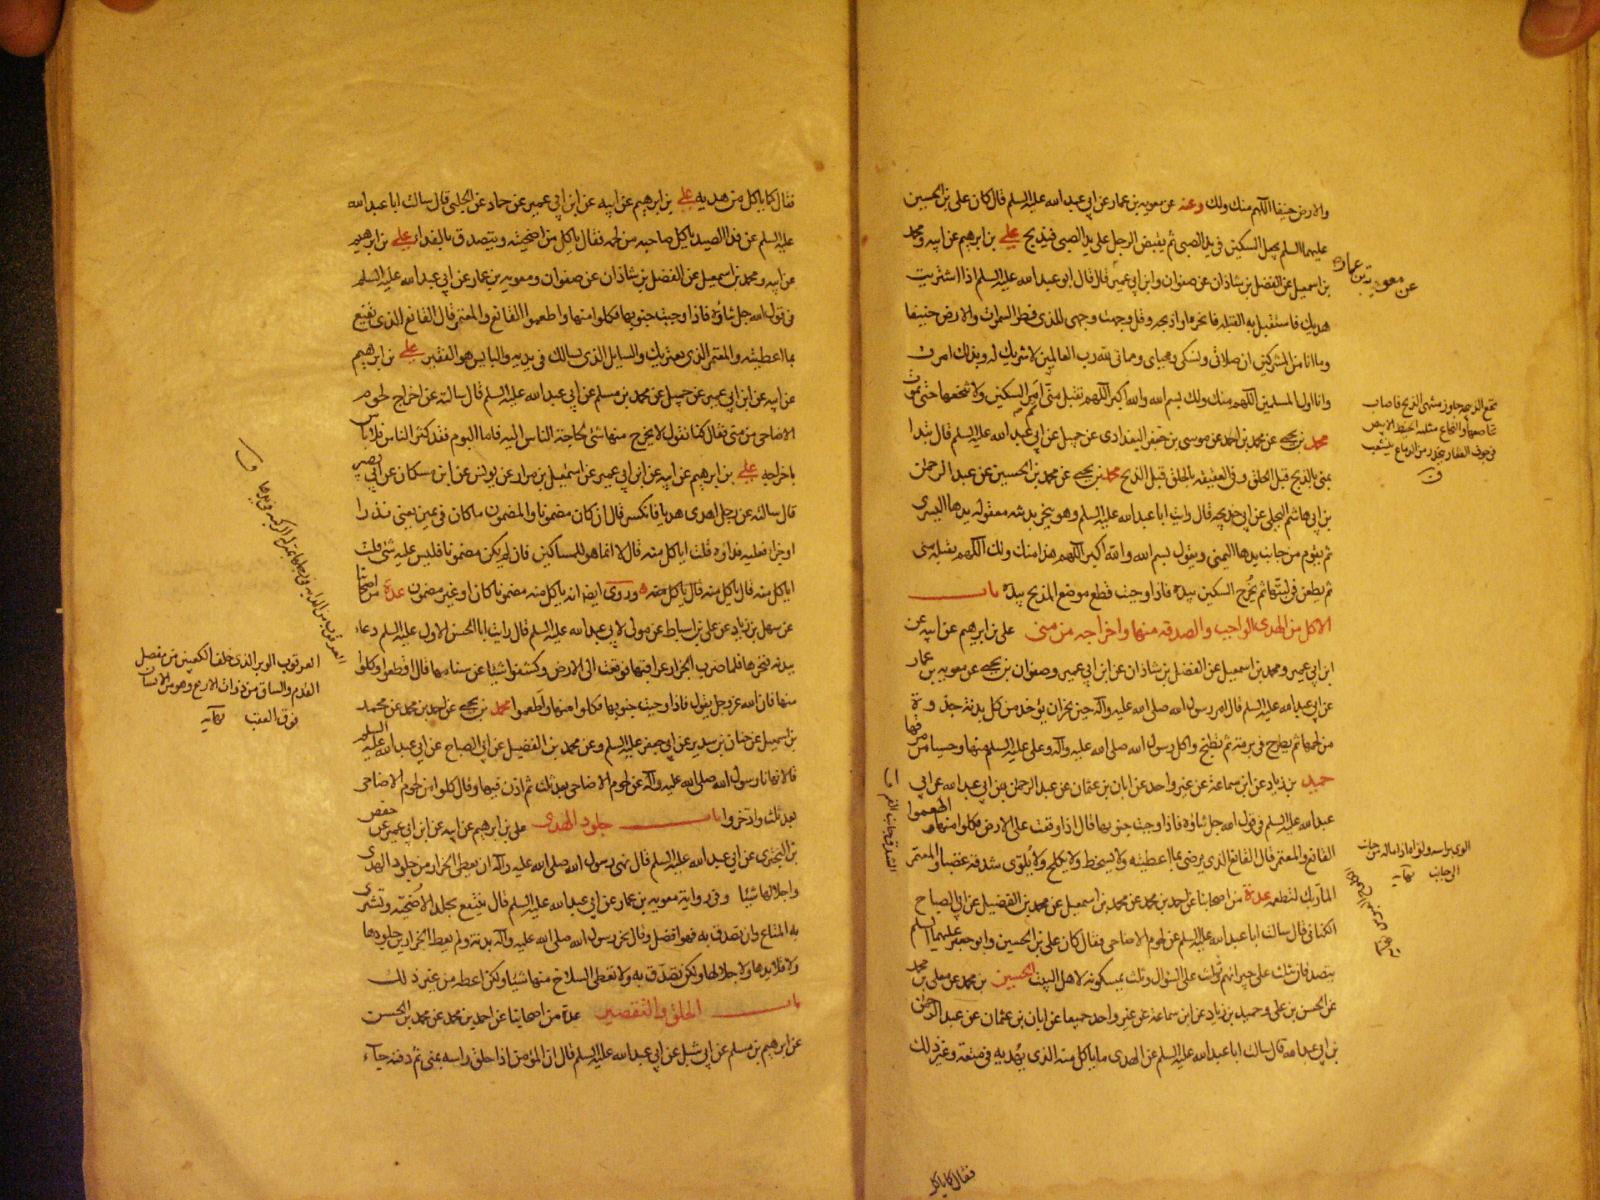 والارض حنيفا اللهم منك ولك وعنه عن معوية بن عمار عن ابي عبد الله عليه السلم قال كان علي بن الحسين
عليهما السلم يجعل السكين في يد الصبي ثم يقبض الرجل على يد الصبي فيذبح علي بن ابرهيم عن ابيه ومحمد
بن اسمعيل عن الفضل بن شاذان عن صفوان وابن ابي عمير قال قال ابو عبد الله عليه السلم اذا اشتريت
عن معوية بن عمار
هديك فاستقبل به القبلة فانحره او اذبحه وقل وجهت وجهي للذي فطر السموات والارض حنيفا
وما انا من المشركين ان صلاتي ونسكي ومحياي ومماتي لله رب العالمين لا شريك له وبذلك امرت
وانا اول المسلمين اللهم منك ولك بسم الله والله اكبر اللهم تقبل مني ثم امر السكين ولا تنخعها حتى تموت
محمد بن يحيى عن محمد بن احمد عن موسى بن جعفر البغدادي عن جميل عن ابي عبد الله عليه السلم قال تبدا
بمنى بالذبح قبل الحلق وفي العقيقة بالحلق قبل الذبح محمد بن يحيى عن محمد بن الحسين عن عبد الرحمن
بن ابي هاشم البجلي عن ابي خديجه قال رايت ابا عبد الله عليه السلم وهو ينحر بدنته معقوله يدها اليسرى
ثم يقوم من جانب يدها اليمنى ويقول بسم الله والله اكبر اللهم هذا منك ولك اللهم تقبله مني
ثم يطعن في لبتها ثم يخرج السكين بيده فاذا وجبت قطع موضع الذبح بيده باب
الاكل من الهدي الواجب والصدقه منها واخراجه من منى علي بن ابرهيم عن ابيه عن
ابن ابي عمير ومحمد بن اسمعيل عن الفضل بن شاذان عن ابن ابي عمير وصفوان بن يحيى عن معوية بن عمار
عن ابي عبد الله عليه السلم قال امر رسول الله صلى الله عليه وآله حين نحر ان يؤخذ من كل بدنة جذوة
من لحمها ثم يطرح في برمة ثم تطبخ واكل رسول الله صلى الله عليه وآله وعلي عليه السلم منها وحسيا من مرقها
حميد بن زياد عن ابن سماعة عن غير واحد عن ابان بن عثمان عن عبد الرحمن بن ابي عبد الله عن ابي
عبد الله عليه السلم في قول الله جل ثناؤه فاذا وجبت جنوبها قال اذا وقعت على الارض فكلوا منها واطعموا
القانع والمعتر قال القانع الذي يرضى بما اعطيته ولا يسخط ولا يكلح ولا يلوي شدقه غضبا والمعتر
المار بك لتطعمه عدة من اصحابنا عن احمد بن محمد عن محمد بن اسمعيل عن محمد بن الفضيل عن ابي الصباح
الكناني قال سالت ابا عبد الله عليه السلم عن لحوم الاضاحي فقال كان علي بن الحسين وابو جعفر عليهما السلم
يتصدقان بثلث على جيرانهم وثلث على السؤال وثلث يمسكونه لاهل البيت الحسين بن محمد عن معلى بن محمد
عن الحسن بن علي وحميد بن زياد عن ابن سماعة عن غير واحد جميعا عن ابان بن عثمان عن عبد الرحمن
بن ابي عبد الله قال سالت ابا عبد الله عليه السلم عن الهدي ما ياكل منه الذي يهديه في متعة وغير ذلك
فقال كما ياكل
فقال كما ياكل من هديه علي بن ابرهيم عن ابيه عن ابن ابي عمير عن حماد عن الحلبي قال سالت ابا عبد الله
عليه السلم عن فداء الصيد ياكل صاحبه من لحمه فقال ياكل من اضحيته ويتصدق بالفداء علي بن ابرهيم
عن ابيه ومحمد بن اسمعيل عن الفضل بن شاذان عن صفوان ومعوية بن عمار عن ابي عبد الله عليه السلم
في قول الله جل ثناؤه فاذا وجبت جنوبها فكلوا منها واطعموا القانع والمعتر قال القانع الذي يقنع
بما اعطيته والمعتر الذي يعتريك والسايل الذي يسالك في يديه والبايس هو الفقير علي بن ابرهيم
عن ابيه عن ابن ابي عمير عن جميل عن محمد بن مسلم عن ابي عبد الله عليه السلم قال سالته عن اخراج لحوم
الاضاحي من منى فقال كنا نقول لا يخرج منها شئ لحاجة الناس اليه فاما اليوم فقد كثر الناس فلا باس
باخراجه علي بن ابرهيم عن ابيه عن ابن ابي عمير عن اسمعيل بن مرار عن يونس عن ابن مسكان عن ابي بصير
قال سالته عن رجل اهدى هديا فانكسر قال ان كان مضمونا والمضمون ما كان في يمين يعني نذرا
او جزاء فعليه فداؤه قلت اياكل منه قال لا انما هو للمساكين فان لم يكن مضمونا فليس عليه شئ قلت
اياكل منه قال ياكل منه قال ياكل منه وروي ايضا انه ياكل منه مضمونا كان او غير مضمون عدة من اصحابنا
عن سهل بن زياد عن علي بن اسباط عن مولى لابي عبد الله عليه السلم قال رايت ابا الحسن الاول عليه السلم دعا
ببدنة فنحرها فلما ضرب الجزار عراقيبها فوقعت الى الارض وكشفوا شيئا عن سنامها قال اقطعوا وكلوا
منها فان الله عز وجل يقول فاذا وجبت جنوبها فكلوا منها واطعموا محمد بن يحيى عن احمد بن محمد عن محمد
بن اسمعيل عن حنان بن سدير عن ابي جعفر عليه السلم وعن محمد بن الفضيل عن ابي الصباح عن ابي عبد الله عليه السلم
قالا نهانا رسول الله صلى الله عليه وآله عن لحوم الاضاحي بعد ثلث ثم اذن فيها وقال كلوا من لحوم الاضاحي
بعد ثلث وادخروا باب جلود الهدي علي بن ابرهيم عن ابيه عن ابن ابي عمير عن حفص
بن البختري عن ابي عبد الله عليه السلم قال نهى رسول الله صلى الله عليه وآله ان يعطى الجزار من جلود الهدي
واجلالها شيئا وفي رواية معوية بن عمار عن ابي عبد الله عليه السلم قال ينتفع بجلد الاضحية ويشترى
به المتاع وان تصدق به فهو افضل وقال نحر رسول الله صلى الله عليه وآله بدنة ولم يعط الجزارين جلودها
ولا قلايدها ولا جلالها ولكن تصدق به ولا تعطي السلاخ منها شيئا ولكن اعطه من غير ذلك
باب الحلق والتقصير عدة من اصحابنا عن احمد بن محمد عن محمد بن الحسن
عن ابرهيم بن مسلم عن ابي شبل عن ابي عبد الله عليه السلم قال ان المؤمن اذا حلق راسه بمنى ثم دفنه جاء
العرقوب الوتر الذي خلف الكعبين من مفصل
القدم والساق من ذوات الاربع وهو من الانسان
فوق العقب نهاية